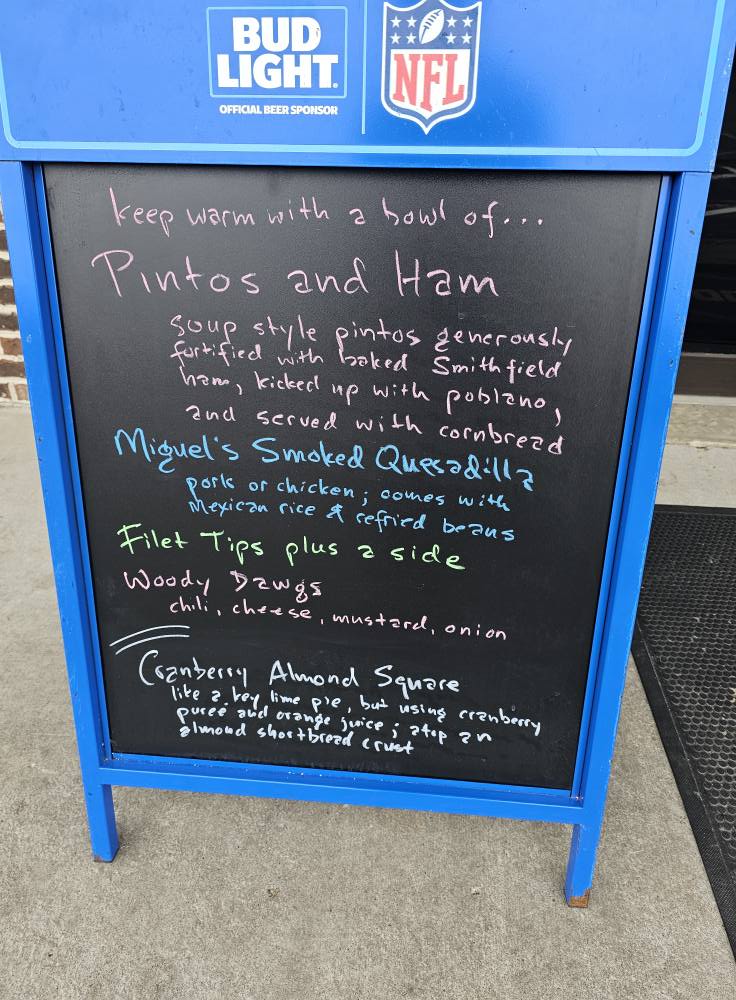 BUD
LIGHT
OFFICIAL BEER SPONSOR
NFL
keep warm with a bowl of...
Pintos and Ham
soup style pintos generously
fortified with baked Smithfield
ham, kicked up with poblano,
and served with cornbread
Miguel's Smoked Quesadilla
pork or chicken; comes with
Mexican rice & refried beans
Filet Tips plus a side
Woody Dawgs
chili, cheese, mustard, onion
Cranberry Almond Square
like a key lime pie, but using cranberry
pureé and orange juice; atop an
almond shortbread crust